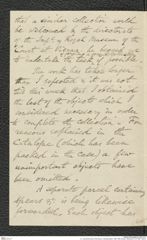 that a similar collection would
be welcomed by the directorate
of the Royal Museum of the
Court at Vienna, he begged us
to undertake the task, if possible.
The work has taken longer
than I expected & it was not
till this week that I obtained
the last of the objects which I
considered necessary in order
to complete the collection. For
reasons explained in the
Catalogue (which has been
packed in the case) a few
unimportant objects have
been omitted.
A separate parcel containing
spears &c is being likewise
forwarded. Each object has